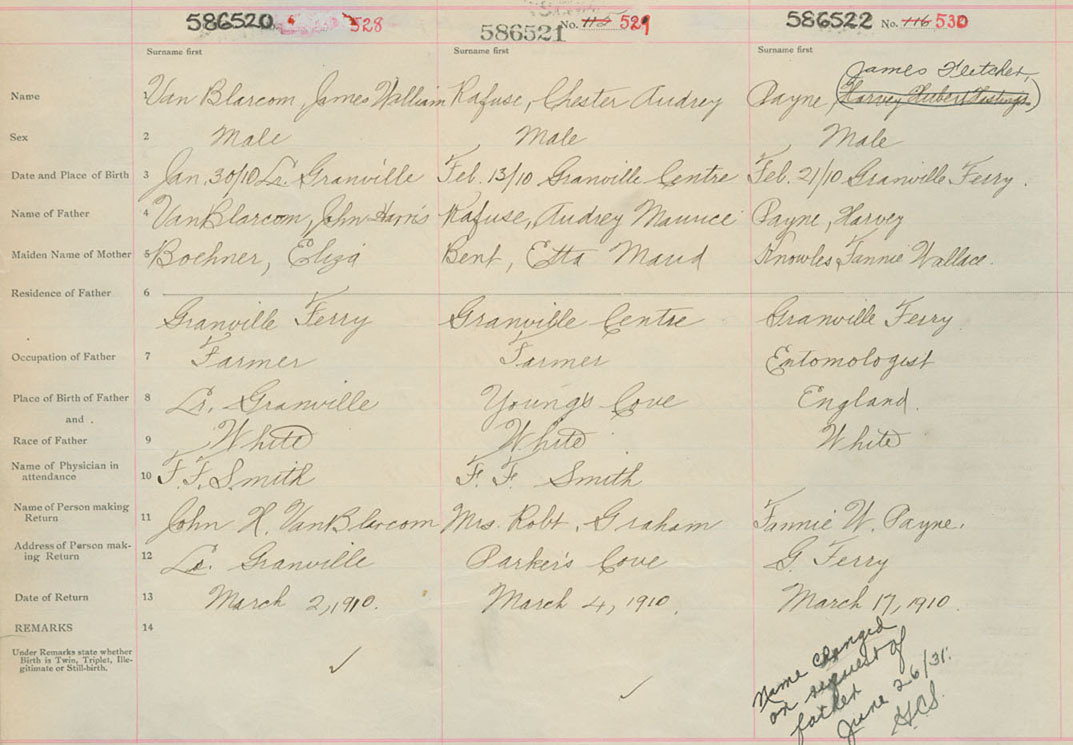 586520 No. 528
586521 No. 112 529
586522 No. 116 530
Surname first Surname first Surname first
James Fletcher
Name Van Blarcom, James William Rafuse, Chester Audrey Payne, Harvey Hastings
Sex 2 Male Male Male
Date and Place of Birth 3 Jan. 30/10 Lr. Granville Feb. 13/10 Granville Centre Feb. 21/10 Granville Ferry.
Name of Father 4 Van Blarcom, John Harris Rafuse, Audrey Maurice Payne, Harvey
Maiden Name of Mother 5 Boehner, Eliza Bent, Etta Maud Knowles, Fannie Wallace.
Residence of Father 6
Granville Ferry Granville Centre Granville Ferry
Occupation of Father 7 Farmer Farmer Entomologist
Place of Birth of Father 8 Lr. Granville Young's Cove England.
and
Race of Father 9 White White White
Name of Physician in
attendance 10 F. F. Smith F. F. Smith
Name of Person making
Return 11 John H. Van Blarcom Mrs. Robt. Graham Fannie W. Payne.
Address of Person mak-
ing Return 12 Lr. Granville Parker's Cove G. Ferry
Date of Return 13 March 2, 1910. March 4, 1910. March 17, 1910.
REMARKS 14
Under Remarks state whether
Birth is Twin, Triplet, Ille-
gitimate or Still-birth.
Name changed
on request of
father
June 26/31.